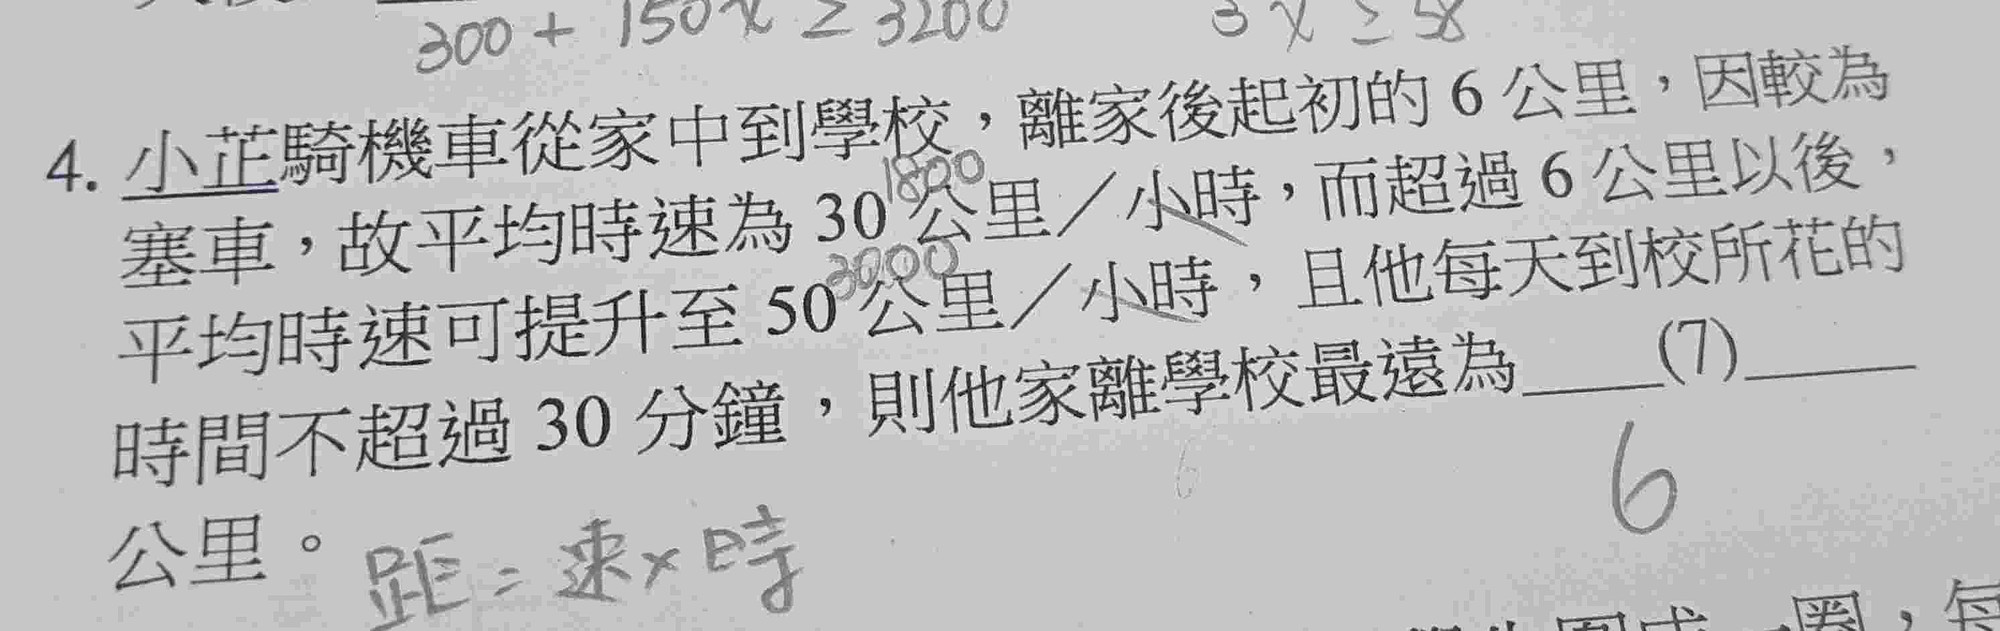 300 + 150x ≥ 3200 3x ≥ 58
4. 小芷騎機車從家中到學校，離家後起初的 6 公里，因較為
1800
塞車，故平均時速為 30 公里／小時，而超過 6 公里以後，
3000
平均時速可提升至 50 公里／小時，且他每天到校所花的
時間不超過 30 分鐘，則他家離學校最遠為 (7)
6
公里。
距=速×時
圈，每